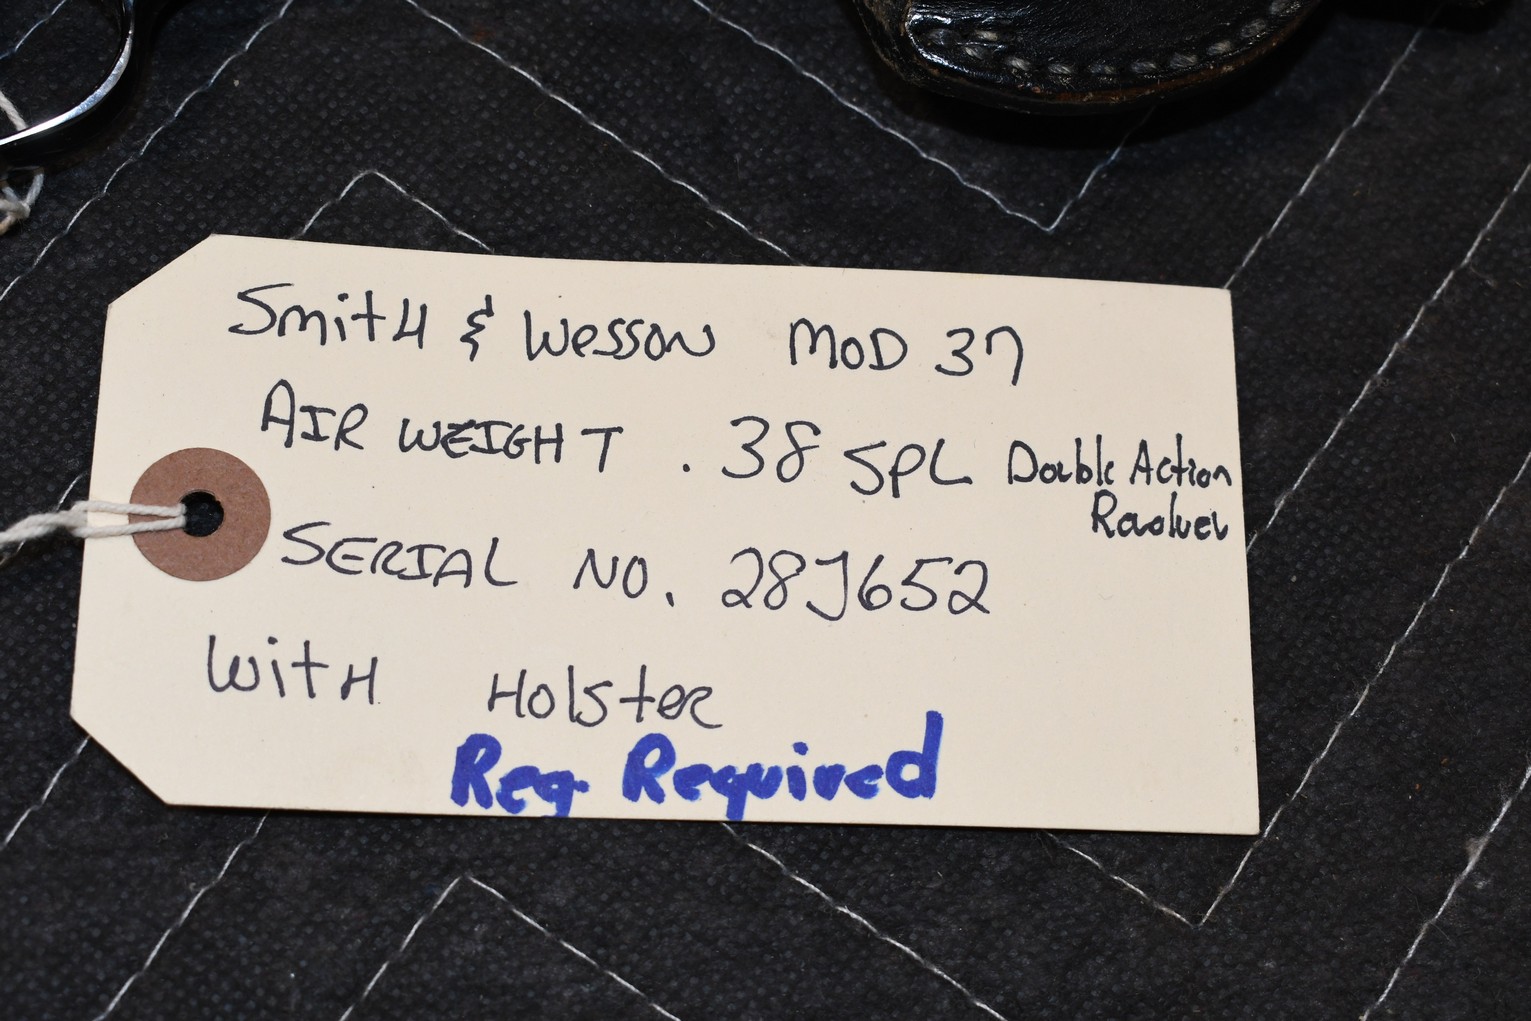 Smith & Wesson MOD 37
AIRWEIGHT .38 SPL Double Action
Revolver
SERIAL NO. 28J652
With Holster
Reg. Required